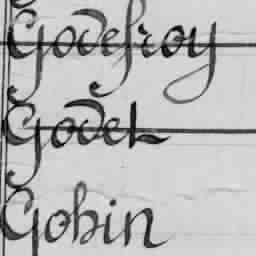 Godefroy
Godet
Gobin